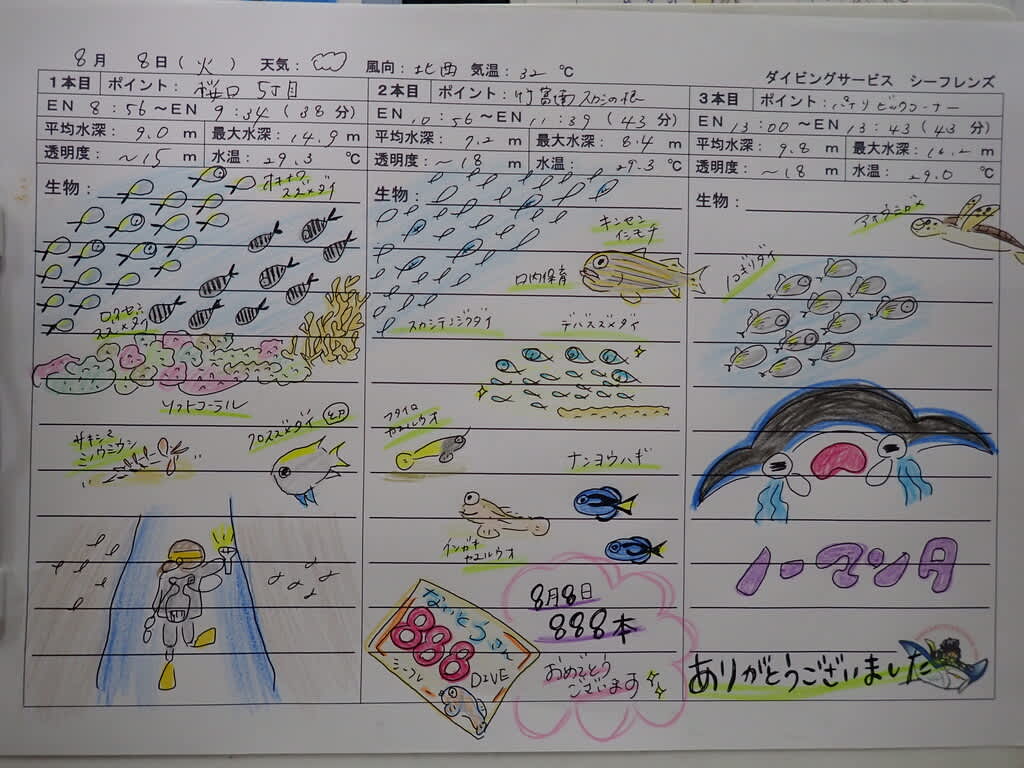 8月 8日(火) 天気: 風向:北西 気温:32℃
ダイビングサービス シーフレンズ
1本目 ポイント: 桜口 5丁目
EN 8:56~EN 9:34(38分)
平均水深: 9.0 m 最大水深:14.9 m
透明度: ~15 m 水温:29.3 ℃
生物:
オキナワスズメダイ
ロクセンスズメダイ
ソフトコーラル
サキシマミノウミウシ
クロスズメダイ 幼
2本目 ポイント:竹富南スカシの根
EN 10:56~EN 11:39(43分)
平均水深: 7.2 m 最大水深: 8.4 m
透明度:~18 m 水温:29.3 ℃
生物:
キンセンイシモチ
口内保育
スカシテンジクダイ
デバスズメダイ
フタイロカエルウオ
ナンヨウハギ
インガナカエルウオ
ないとうさん
888
DIVE
シーフレ
8月8日
888本
おめでとうございます
3本目 ポイント:パナリビッグコーナー
EN 13:00~EN 13:43(43分)
平均水深: 9.8 m 最大水深:16.2 m
透明度: ~18 m 水温: 29.0 ℃
生物:
アオウミガメ
ノコギリダイ
ノーマンタ
ありがとうございました